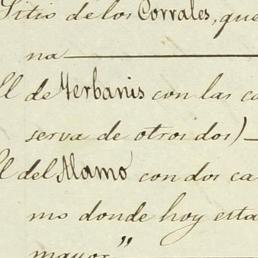 Sitio de los Corrales, que
na
El de Yerbanis con las ca
serva de otros dos)
El del Alamo con dos ca
mo donde hoy esta
mayor"